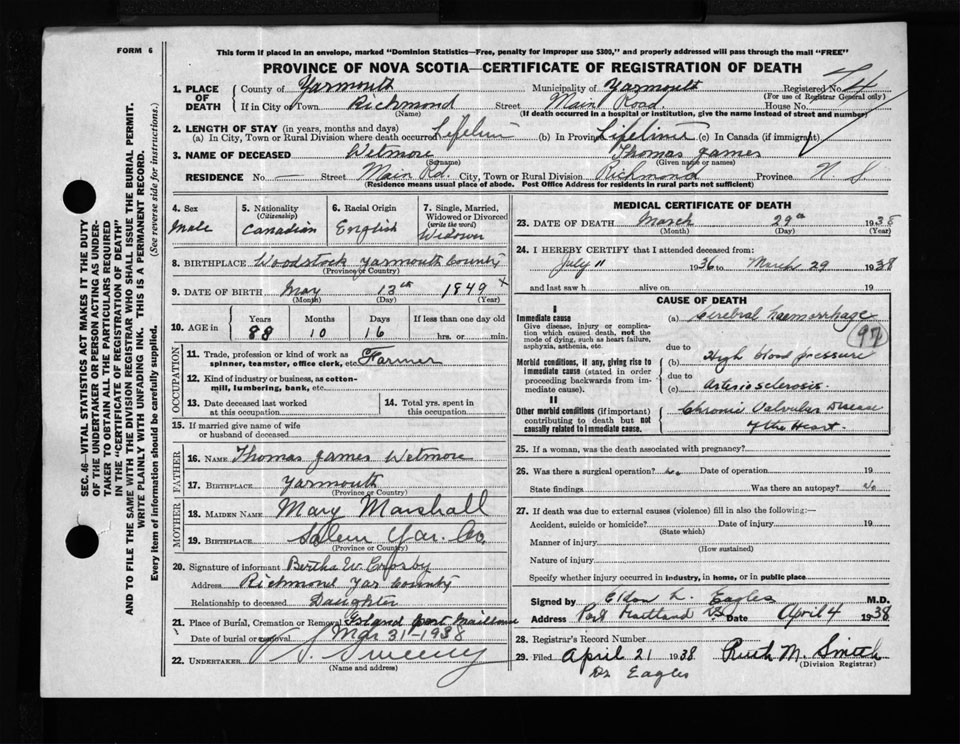 FORM 6
This form if placed in an envelope, marked "Dominion Statistics—Free, penalty for improper use $300," and properly addressed will pass through the mail "FREE"
PROVINCE OF NOVA SCOTIA—CERTIFICATE OF REGISTRATION OF DEATH
1. PLACE OF DEATH County of Yarmouth Municipality of Yarmouth Registered No.
(For use of Registrar General only)
If in City or Town Richmond Street Main Road. House No.
(Name) (If death occurred in a hospital or institution, give the name instead of street and number)
2. LENGTH OF STAY (in years, months and days)
(a) In City, Town or Rural Division where death occurred (b) In Province Lifetime (c) In Canada (if immigrant)
3. NAME OF DECEASED Wetmore Thomas James
(Surname) (Given name or names)
RESIDENCE No. — Street Main Rd. City, Town or Rural Division Richmond Province N S
(Residence means usual place of abode. Post Office Address for residents in rural parts not sufficient)
4. Sex Male
5. Nationality (Citizenship) Canadian
6. Racial Origin English
7. Single, Married, Widowed or Divorced (write the word) Widower
8. BIRTHPLACE Woodstock Yarmouth County
(Province or Country)
9. DATE OF BIRTH May 13th 1849 x
(Month) (Day) (Year)
10. AGE in Years 88 Months 10 Days 16 If less than one day old hrs. or min.
OCCUPATION
11. Trade, profession or kind of work as spinner, teamster, office clerk, etc. Farmer
12. Kind of industry or business, as cotton-mill, lumbering, bank, etc.
13. Date deceased last worked at this occupation
14. Total yrs. spent in this occupation
15. If married give name of wife or husband of deceased
FATHER
16. NAME Thomas James Wetmore
17. BIRTHPLACE Yarmouth
(Province or Country)
MOTHER
18. MAIDEN NAME Mary Marshall
19. BIRTHPLACE Salem Yar. Co.
(Province or Country)
20. Signature of informant Bertha W. Crosby
Address Richmond Yar County
Relationship to deceased Daughter
21. Place of Burial, Cremation or Removal Island
Date of burial or removal Mar 31-1938
22. UNDERTAKER Sweeny
(Name and address)
MEDICAL CERTIFICATE OF DEATH
23. DATE OF DEATH March 29th 1938
(Month) (Day) (Year)
24. I HEREBY CERTIFY that I attended deceased from:
July 11 1936 to March 29 1938
and last saw h alive on 19
CAUSE OF DEATH
I
Immediate cause
Give disease, injury or complication which caused death, not the mode of dying, such as heart failure, asphyxia, asthenia, etc.
(a) Cerebral haemorrhage
97
due to
Morbid conditions, if any, giving rise to immediate cause (stated in order proceeding backwards from immediate cause).
(b) High blood pressure
due to
(c) Arteriosclerosis.
II
Other morbid conditions (if important) contributing to death but not causally related to immediate cause.
Chronic Valvular Disease
of the Heart.
25. If a woman, was the death associated with pregnancy?
26. Was there a surgical operation? no Date of operation 19
State findings Was there an autopsy? No
27. If death was due to external causes (violence) fill in also the following:—
Accident, suicide or homicide? Date of injury 19
(State which)
Manner of injury
(How sustained)
Nature of injury
Specify whether injury occurred in industry, in home, or in public place
Signed by Eldon L. Eagles M.D.
Address Port Maitland N.S. Date April 4 1938
28. Registrar's Record Number
29. Filed April 21 1938 Ruth M. Smith
(Division Registrar)
Dr Eagles
SEC. 46—VITAL STATISTICS ACT MAKES IT THE DUTY
OF THE UNDERTAKER OR PERSON ACTING AS UNDER-
TAKER TO OBTAIN ALL THE PARTICULARS REQUIRED
IN THE "CERTIFICATE OF REGISTRATION OF DEATH"
AND TO FILE THE SAME WITH THE DIVISION REGISTRAR WHO SHALL ISSUE THE BURIAL PERMIT.
WRITE PLAINLY WITH UNFADING INK. THIS IS A PERMANENT RECORD.
Every item of information should be carefully supplied. (See reverse side for instructions.)